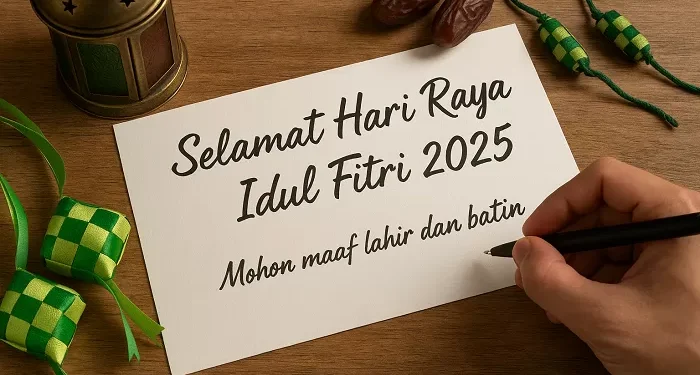 Selamat Hari Raya
Idul Fitri 2025
Mohon maaf lahir dan batin